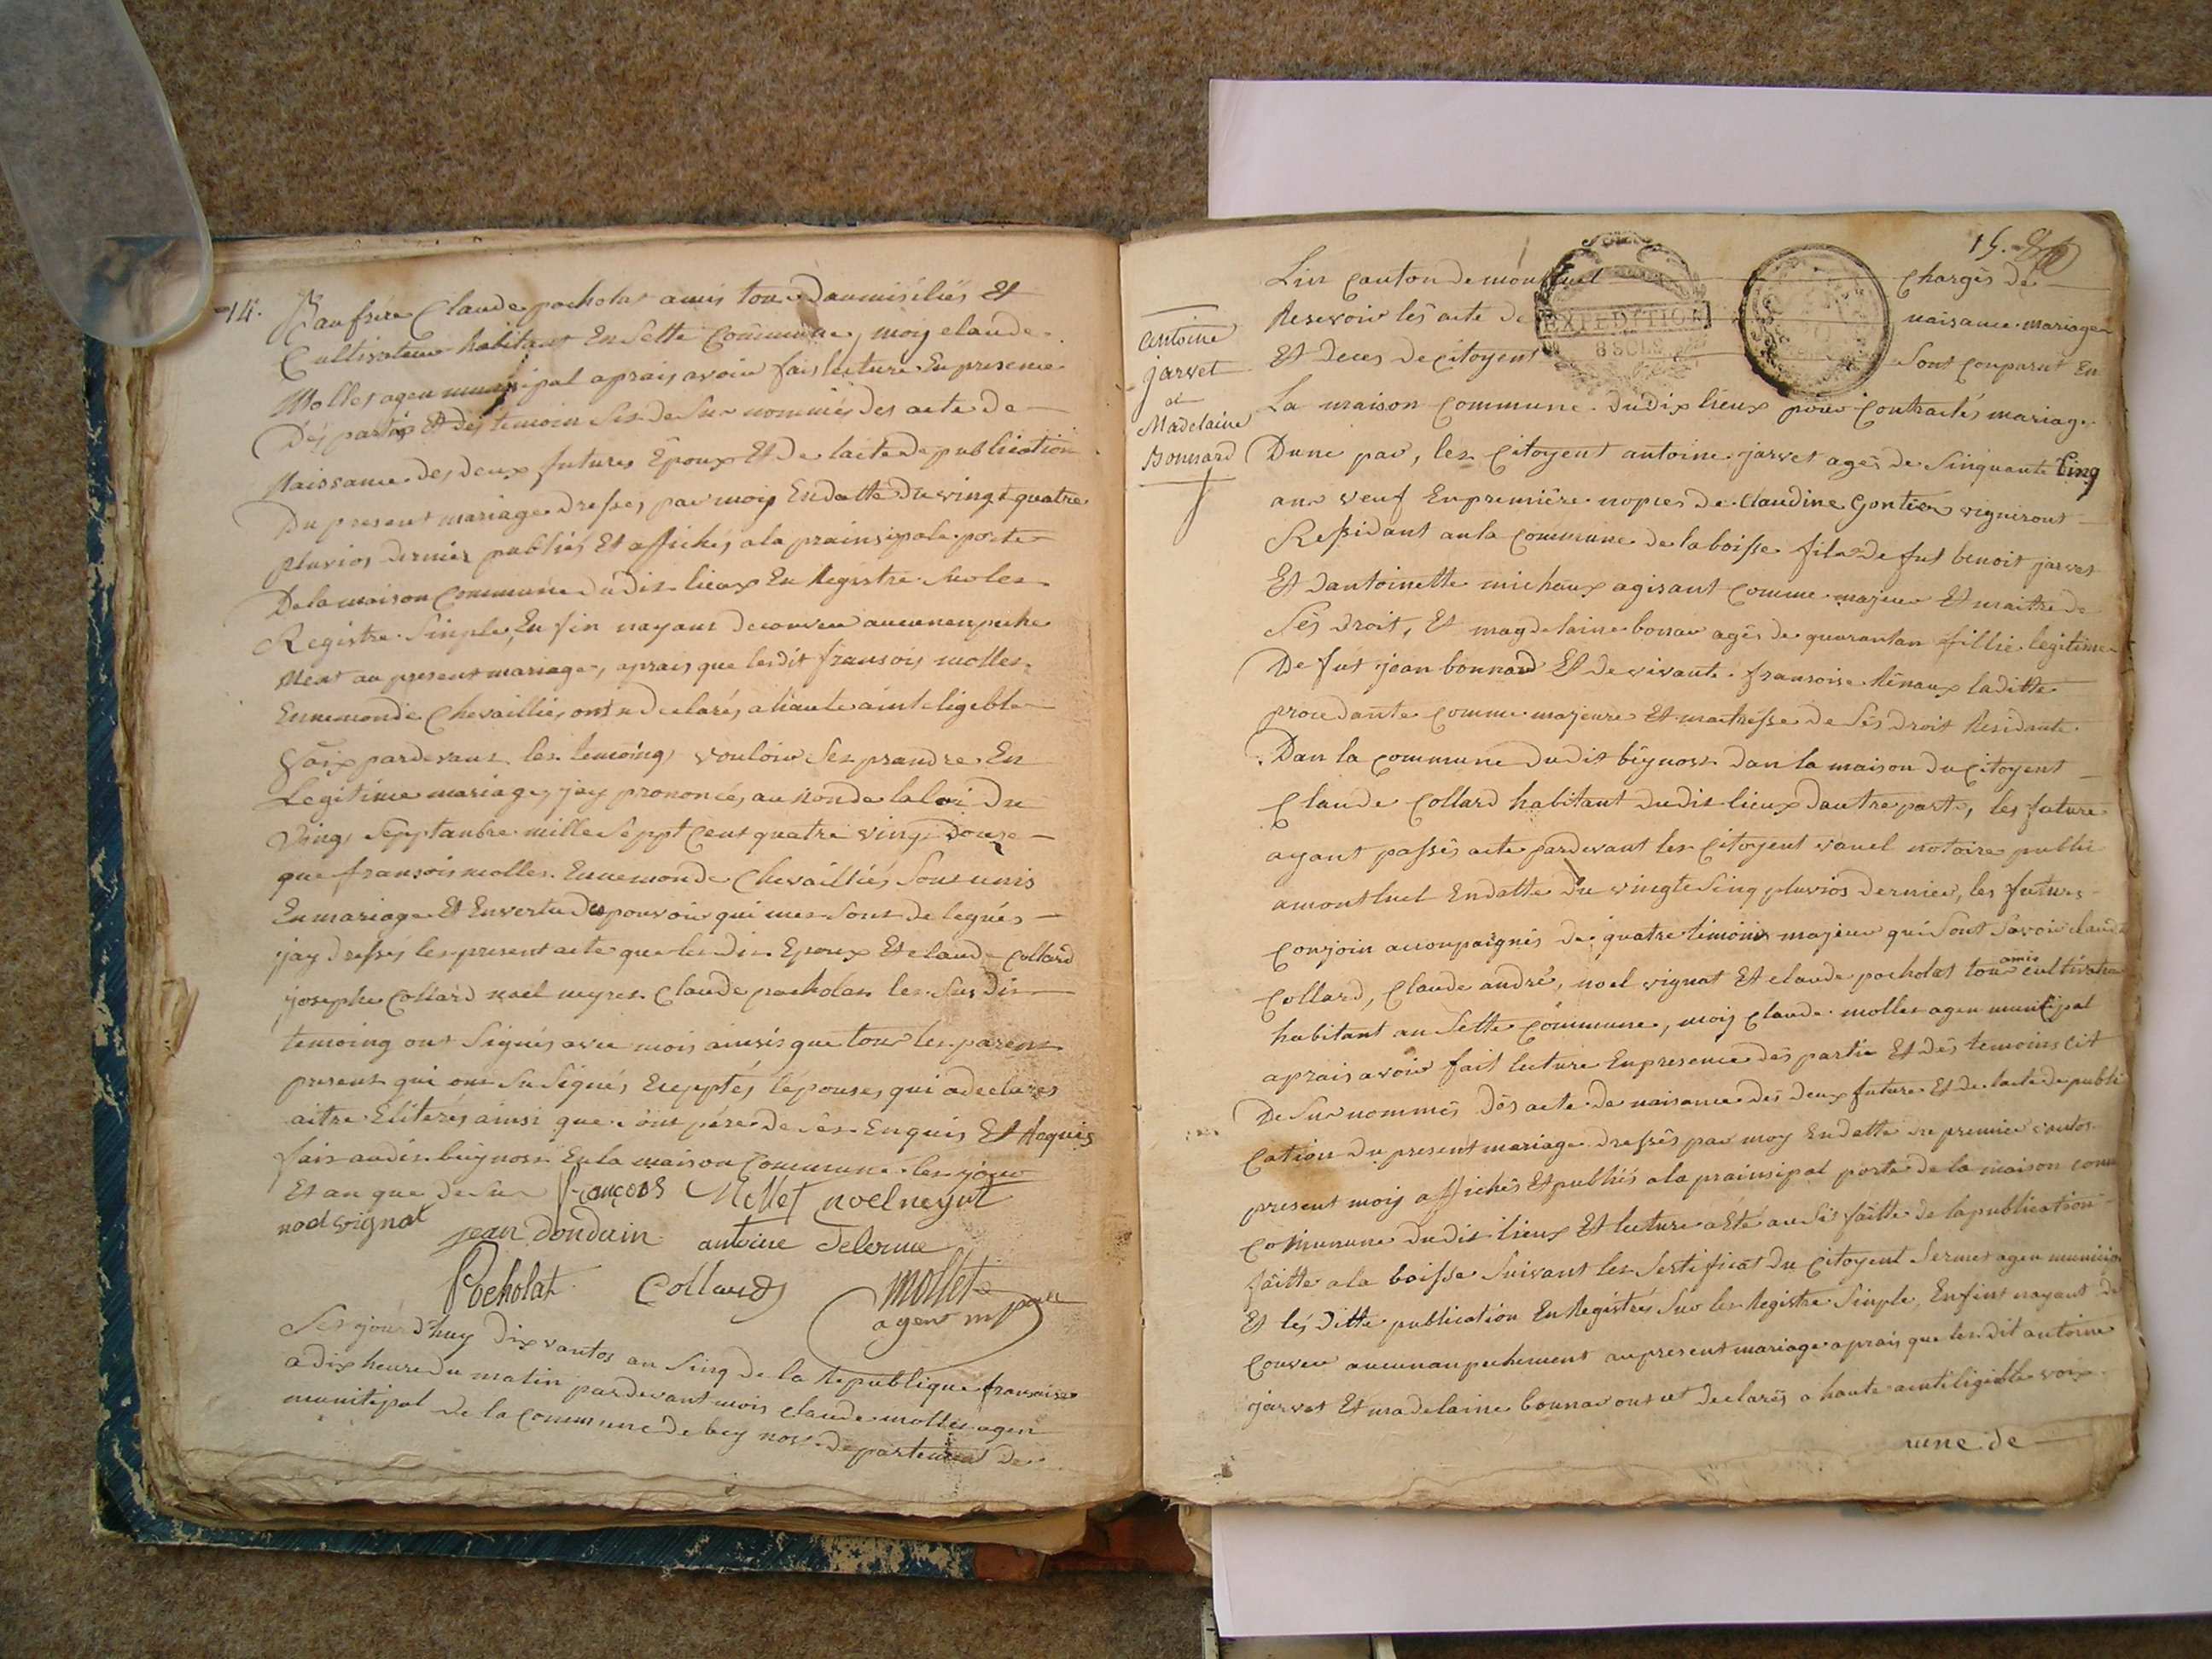 14.
Baufrére Claude pocholat amis tous Daumisiliés Et
Cultivateur habitant En Sette Commune, moy claude
Mollet agen municipal aprais avoir fais lecture En presence
Dés partis Et dés temoin Sis de Sur nommés des acte de
Naissance des deux futures Epoux Et De lacte De publication
Du present mariage dresses par moy En datte Du vingt quatre
pluvios dernier publiés Et affichés a la prainsipale porte
De la maison Commune du dis lieux En Registre Sur les
Registre Simple, En fin nayant decouvru aucunenpeche
ment au present mariage, aprais que les dit fransois mollet
Ennemonde Chevailliés ont declarés a haute ainteligible
voix pardevant les temoing, vouloir Ses prandre En
Legitime mariage, jay prononcés au Nom de la loi Du
Ving Septtanbre mille Seppt Cent quatre ving Douze
que fransois mollet Ennemonde Chevailliés Sont unis
En mariage Et Envertu Du pouvoir qui mes Sont de legués
jay dressés les present acte que les dis Epoux Et claude Collard
josephe Collard noel neyret Claude pocholat les Sus Dis
temoing ont Signés avec mois ainsis que tous les parens
present qui ont Su Signés Exepptés lépouse, qui a declarés
aitre Elitérés ainsi que son pére de Ses Enquis Et Requis
fais au dis beynost En la maison Commune les jour
Et an que de Sur françois Mollet noel neyret
noel vignat jean dondain antoine delorme
Pocholat Collard mollet
agent mpal
Ses jourd'huy Dix vantos an Sinq de la Republique fransaise
a dix heure du matin pardevant mois claude mollet agen
munitipal de la Commune de beynost departement de
15.
Lin Canton de montluel Chargés de
Resevoir lés acte de naisance mariage
Et deces de Citoyent Sont Conparut En
EXPEDITION
8 SOLS
La maison Commune du dix lieux pour Contractés mariage
Antoine
jarvet
et
Madelaine
Bonnard
Dune par, les Citoyent antoine jarvet agés de Sinquante Cinq
ans veuf En premiére nopces de Claudine Gontier vigneront
Ressidant au la Commune de la boisse fils de fut benoit jarvet
Et dantoinette michaux agisant Comme majeur Et maitre de
Sés droit, Et magdelaine bonar agés de quarantan fillie legitime
De fut jean bonnard Et de vivante fransoise Rénaux laditte
procedante Comme majeure Et maitresse de Sés droit Residante
Dan la Commune du dit beynost dan la maison du Citoyent
Claude Collard habitant du dis lieux dautre part, les future
ayant passés acte pardevant les Citoyent vanel notaire public
a montluel En datte Du vingte Sinq pluvios dernier, les futures
Conjoin accompaignés de quatre temoins majeur qui Sont Savoir claude
Collard, Claude andré, noel vignat Et claude pocholat tous amis cultivateur
habitant an Sette Commune, mois Claude mollet agen municipal
aprais avoir fait lecture En presence dés partie Et dés temoins cit
De Sur nommés dés acte de naisance dés deux future Et de lacte de publi
Cation du present mariage dressés par moy En datte du premier vantos
present mois affichés Et publiés a la prainsipal porte de la maison com
Commune du dis lieux Et lecture a Eté au Si faitte de la publication
faitte a la boisse Suivant les Sertificat du Citoyent Sermet agen municip
Et lés ditte publication En Registrés Sur les Registre Simple, Enfint nayant de
Couvru aucunanpechement au present mariage aprais que les dit antoine
jarvet Et madelaine bonnar ont et declarés a haute aintiligible voix
une de